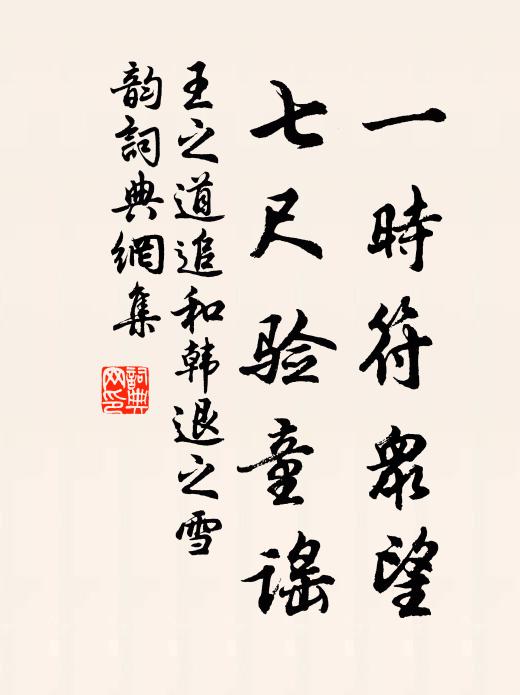 一時符衆望
七尺验童謡
王之道追和韩退之雪
韵詞典網集
詞典網印